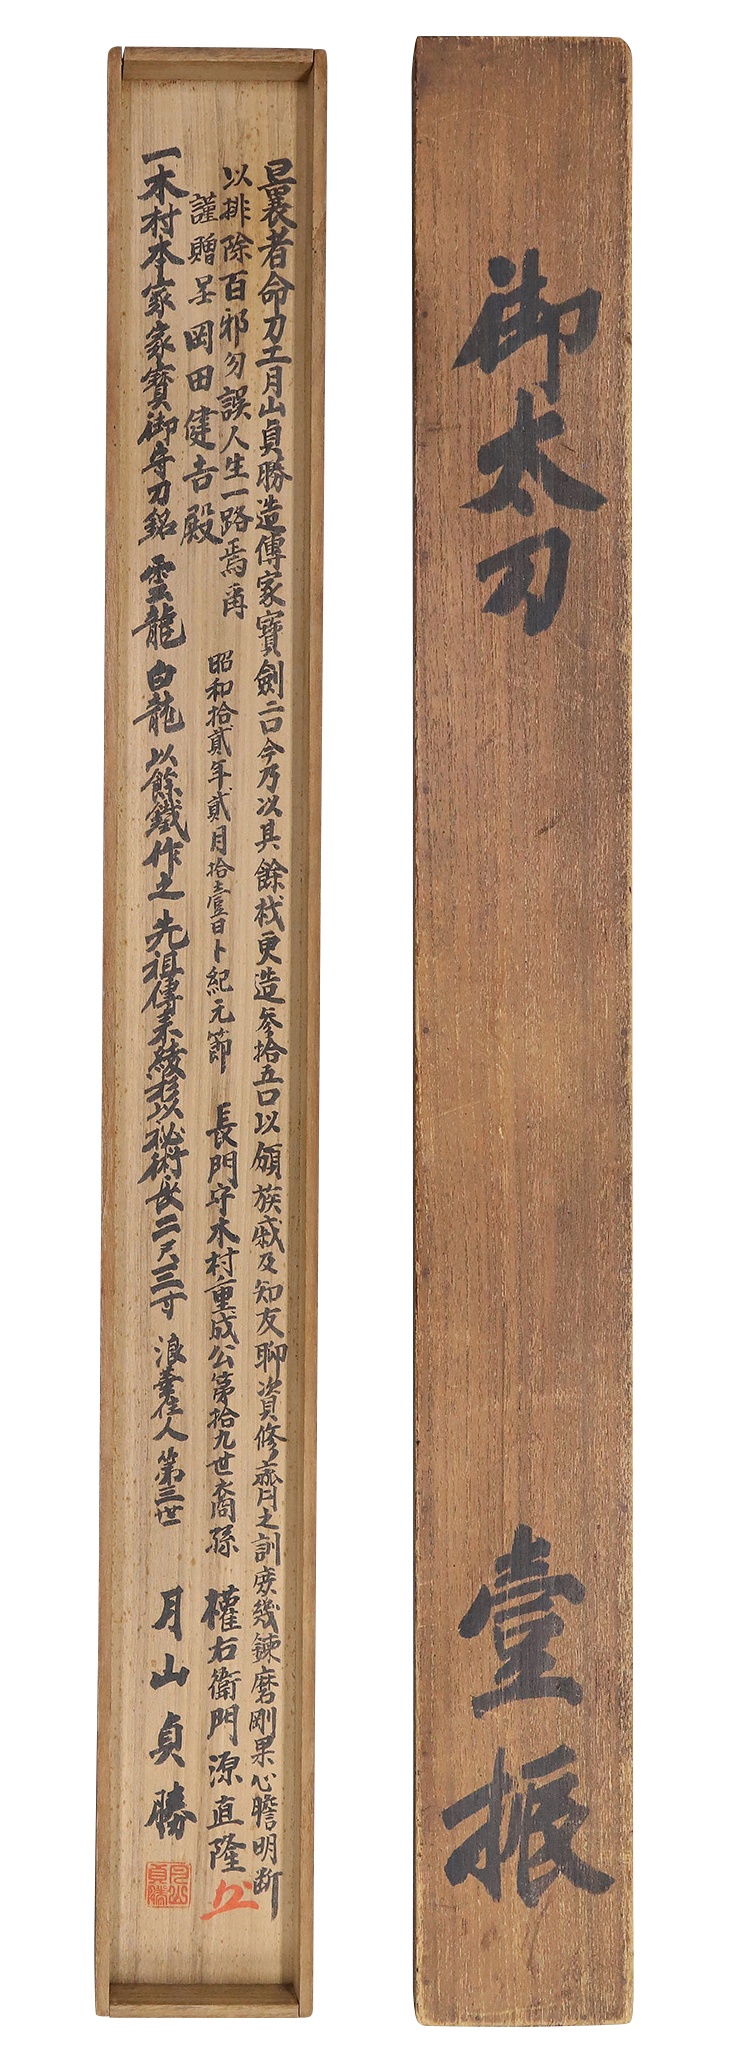 御太刀 壹振
曩者命刀工月山貞勝造傳家寶劍二口今乃以其餘材更造參拾五口以頒族戚及知友聊資修齊之訓庶幾鍊磨剛果心膽明断
以排除百邪勿誤人生一路焉爾 昭和拾貳年貳月拾壹日卜紀元節 長門守木村重成公第拾九世裔孫 權右衛門源直隆
謹贈呈岡田健吉殿
一木村本家家寶御守刀銘 雲龍 白龍 以餘鐵作之 先祖傳来綾杉以秘術 長二尺三寸 浪華住人 第三世 月山貞勝
月山貞勝